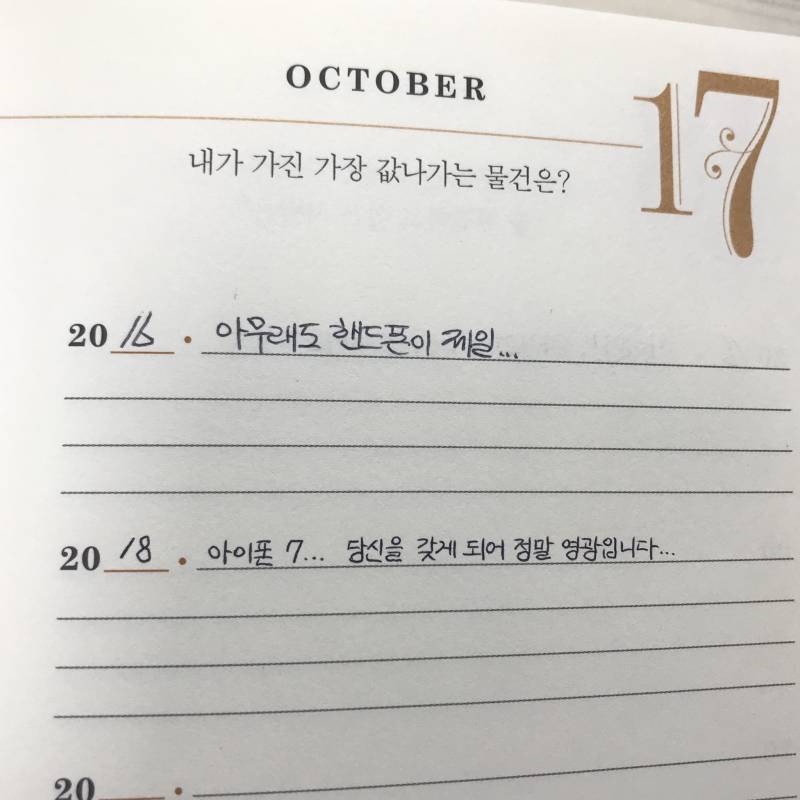 OCTOBER
17
내가 가진 가장 값나가는 물건은?
20 16 · 아무래도 핸드폰이 제일...
20 18 · 아이폰 7... 당신을 갖게 되어 정말 영광입니다...
20 ·